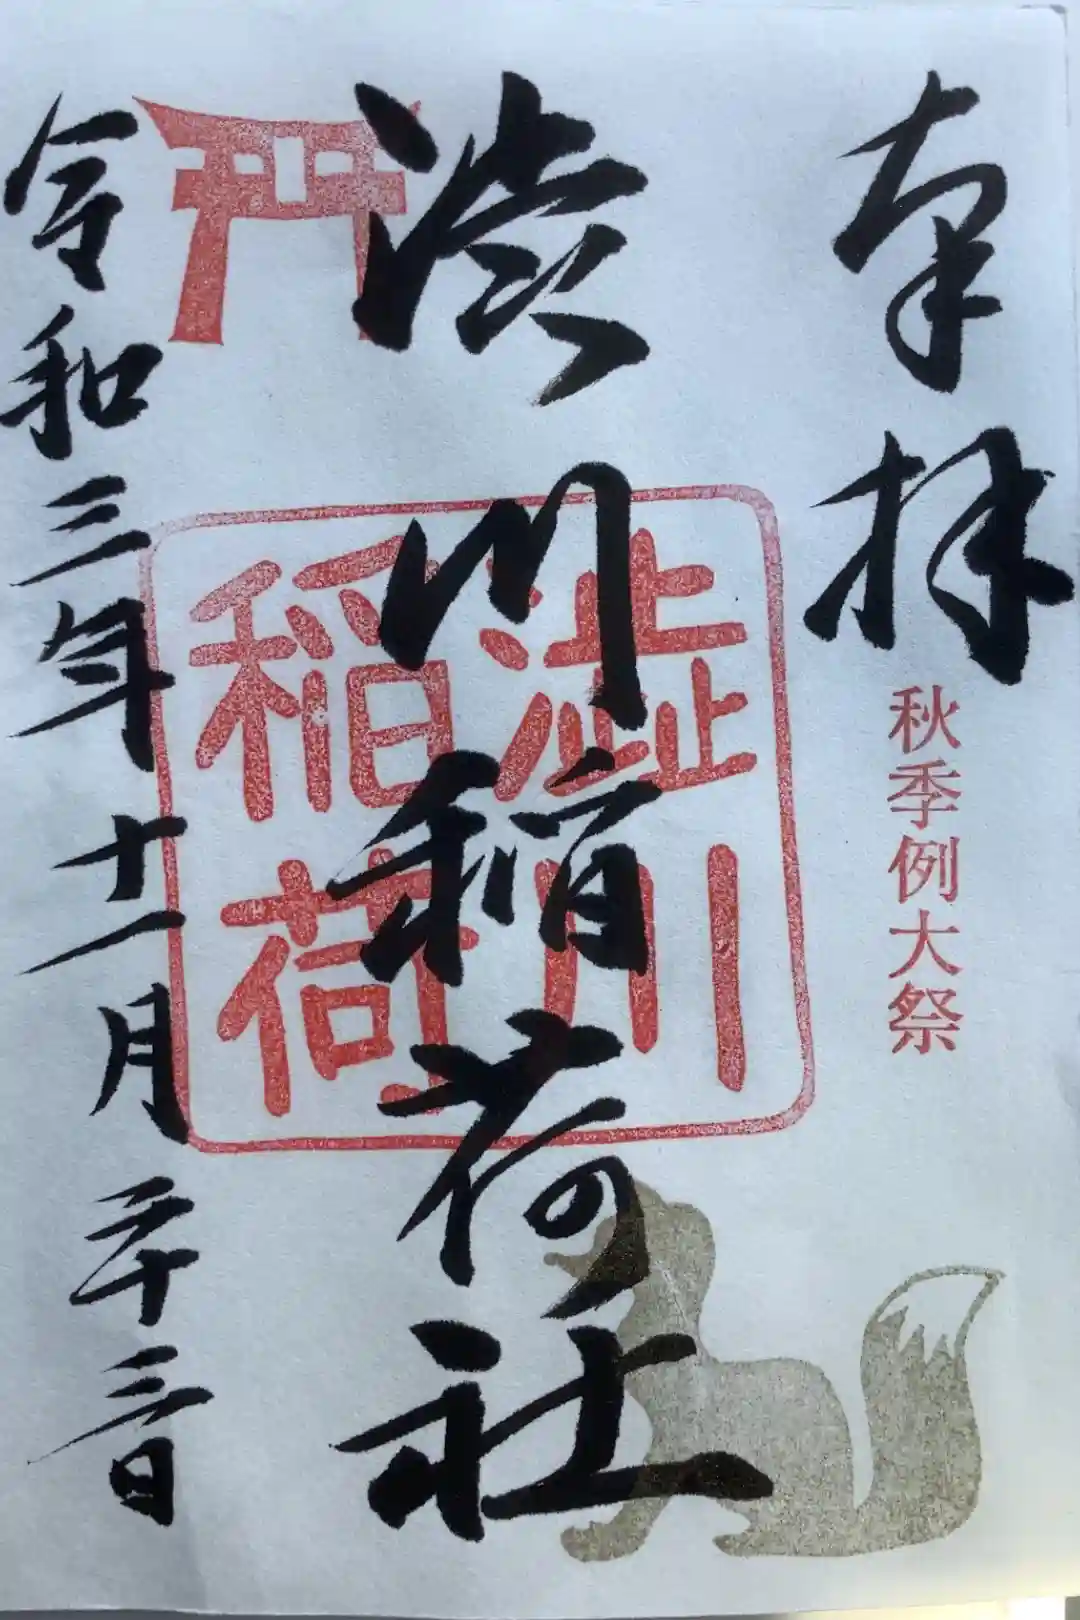 奉拝
秋季例大祭
渋川稲荷社
澁川
稲荷
令和三年十一月二十三日